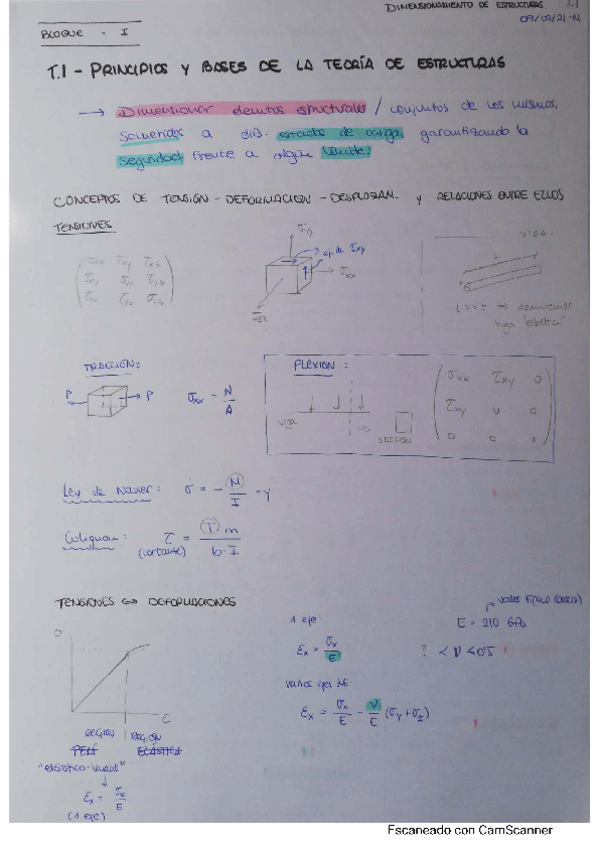 DIMENSIONAMIENTO DE ESTRUCTURAS 1.1
BLOQUE - I
T.1 - PRINCIPIOS Y BASES DE LA TEORÍA DE ESTRUCTURAS
→ Dimensionar elementos estructurales / conjuntos de los mismos,
sometidos a dif. estados de carga, garantizando la
seguridad frente a algún límite.
CONCEPTOS DE TENSIÓN - DEFORMACIÓN - DESPLAZAM. y RELACIONES ENTRE ELLOS
TENSIONES
VIGA
L
TRACCIÓN:
P P
σxx = N/A
FLEXIÓN:
VIGA
SECCIÓN
σxx τxy 0
τxy 0 0
0 0 0
Ley de Navier: σ = - M/I · y
Colignon: τ = T m / b·I
(cortante)
TENSIONES ⇔ DEFORMACIONES
σ
ε
REGIÓN
REGIÓN
ELÁSTICA
"elástico-lineal"
εx = σx/E
(1 eje)
1 eje:
εx = σx/E
valor típico (acero)
E = 210 GPa
? < ν < 0'5
varios ejes
εx = σx/E - ν/E (σy + σz)
Escaneado con CamScanner